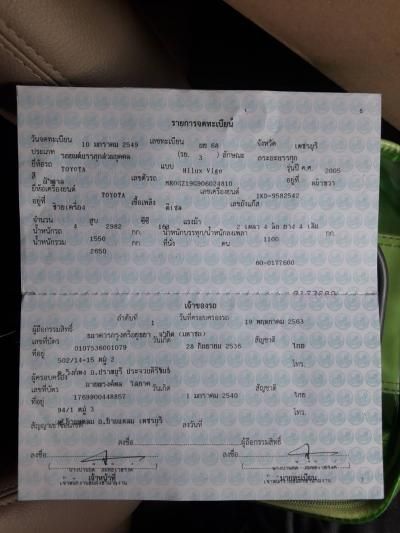 6
รายการจดทะเบียน
วันจดทะเบียน 10 มกราคม 2549 เลขทะเบียน 68 จังหวัด เพชรบุรี
ประเภท รถยนต์บรรทุกส่วนบุคคล (รย. 3 ) ลักษณะ กระบะบรรทุก
ยี่ห้อรถ TOYOTA แบบ Hilux Vigo รุ่นปี ค.ศ. 2005
สี เลขตัวรถ MR0GZ19G906024810 อยู่ที่
ยี่ห้อเครื่องยนต์ TOYOTA เลขเครื่องยนต์ 1KD-9582542
อยู่ที่ เชื้อเพลิง ดีเซล เลขถังแก๊ส
จำนวน 4 สูบ 2982 ซีซี แรงม้า 2 เพลา 4 ล้อ ยาง 4 เส้น
น้ำหนักรถ 1550 กก. น้ำหนักบรรทุก/น้ำหนักลงเพลา 1100 กก.
น้ำหนักรวม 2650 กก. ที่นั่ง คน
60-0177600
เจ้าของรถ
ลำดับที่ 1 วันที่ครอบครองรถ 19 พฤษภาคม 2563
ผู้ถือกรรมสิทธิ์ ธนาคารกรุงศรีอยุธยา จำกัด (มหาชน)
เลขที่บัตร 0107536001079 วันเกิด 28 กันยายน 2536 สัญชาติ ไทย
ที่อยู่ 502/14-15 หมู่ 2
ต.วังก์พง อ.ปราณบุรี ประจวบคีรีขันธ์ โทร.
ผู้ครอบครอง
เลขที่บัตร 1769900448857 วันเกิด 1 มกราคม 2540 สัญชาติ ไทย
ที่อยู่ 94/1 หมู่ 3 โทร.
อ.บ้านแหลม เพชรบุรี
สัญญาเช่าซื้อเลขที่ ลงวันที่
ลงชื่อ ผู้ถือกรรมสิทธิ์
ลงชื่อ ลงชื่อ
เจ้าหน้าที่ นายทะเบียน